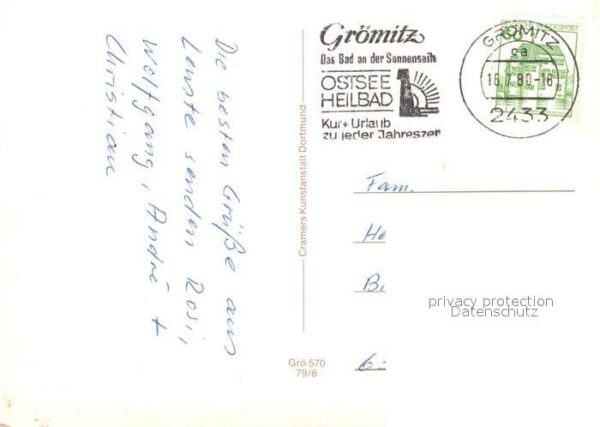 Die besten Grüße aus
Lenste senden Rosi,
Wolfgang, André +
Christian
Cramers Kunstanstalt Dortmund
Grö 570
79/6
Grömitz
Das Bad an der Sonnenseite
OSTSEE
HEILBAD
Kur + Urlaub
zu jeder Jahreszeit
GRÖMITZ
ca
16.7.80-16
2433
Fam.
He
Bi
6
privacy protection
Datenschutz